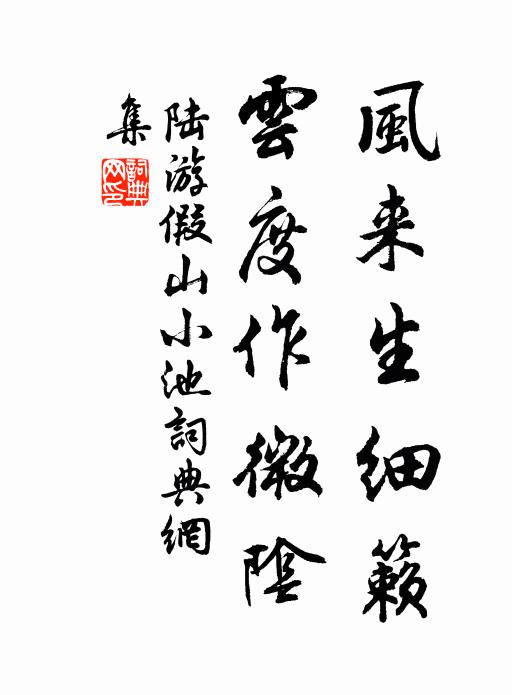 風来生细籟
雲度作微陰
陆游假山小池詞典網
集
詞典网印